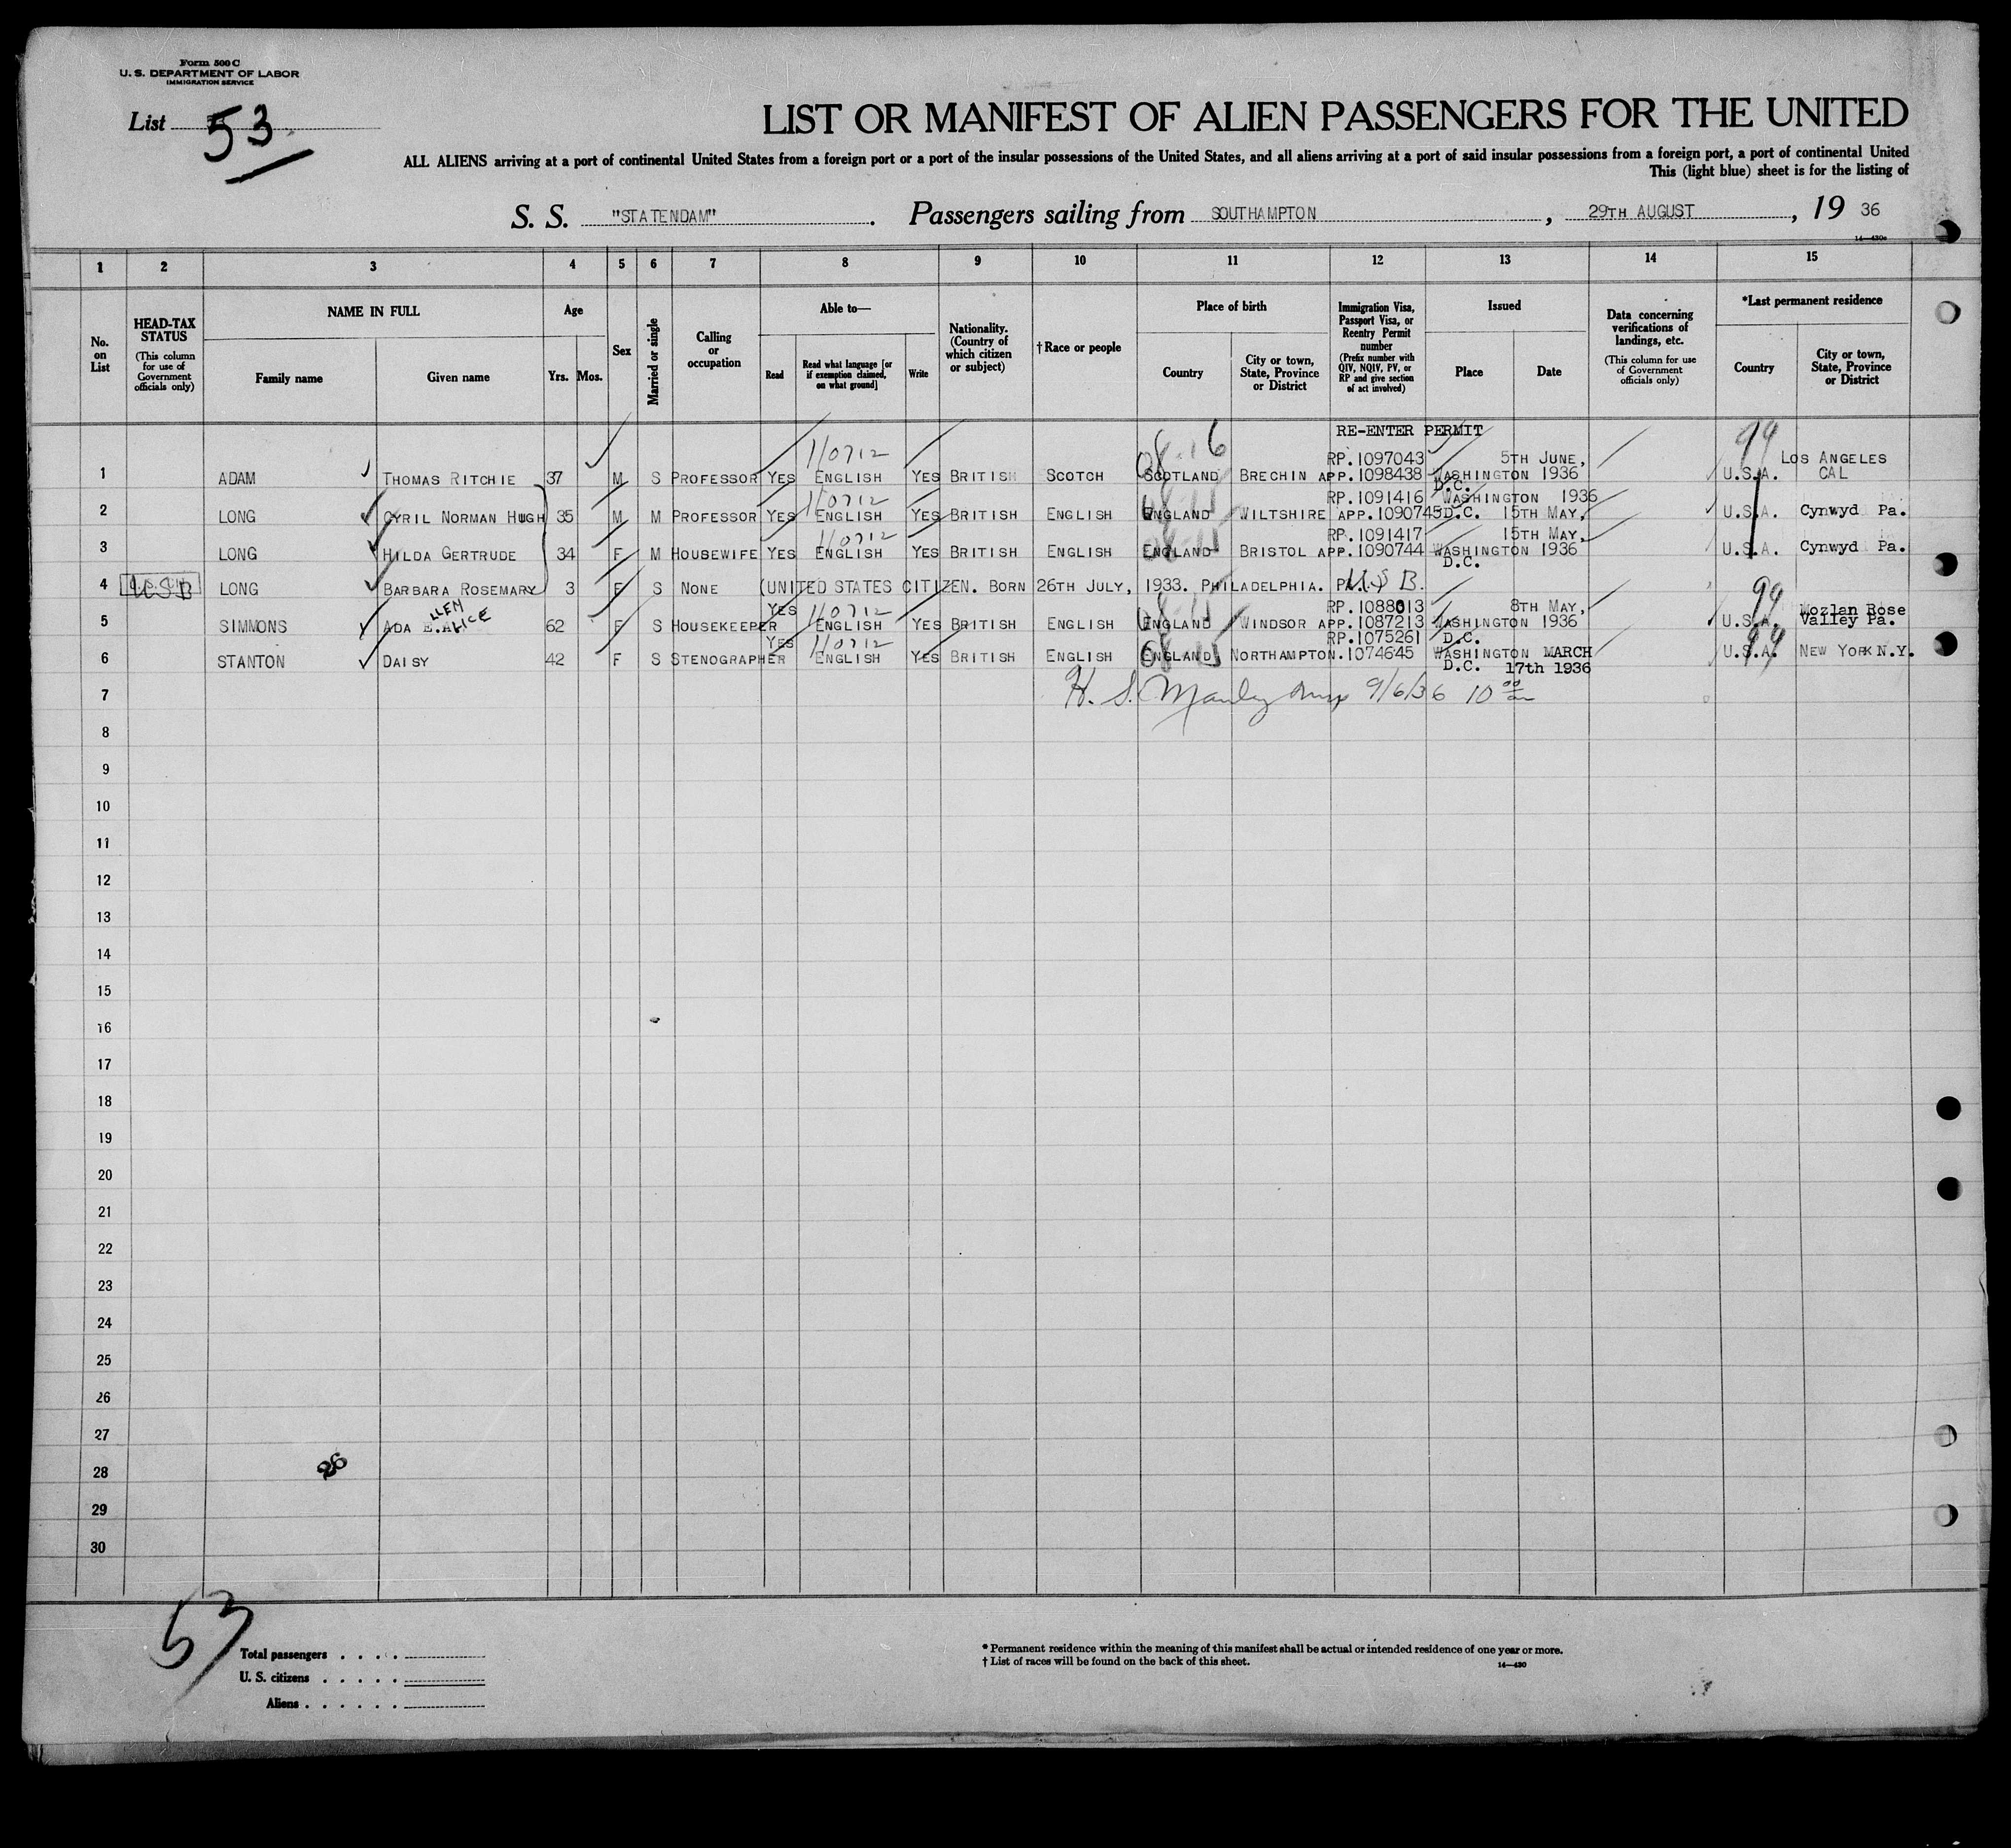 Form 500 C
U. S. DEPARTMENT OF LABOR
IMMIGRATION SERVICE
List 53
LIST OR MANIFEST OF ALIEN PASSENGERS FOR THE UNITED
ALL ALIENS arriving at a port of continental United States from a foreign port or a port of the insular possessions of the United States, and all aliens arriving at a port of said insular possessions from a foreign port, a port of continental United
This (light blue) sheet is for the listing of
S. S. "STATENDAM". Passengers sailing from SOUTHAMPTON, 29TH AUGUST, 19 36
14—430a
1 2 3 4 5 6 7 8 9 10 11 12 13 14 15
No. on List
HEAD-TAX STATUS (This column for use of Government officials only)
NAME IN FULL
Family name
Given name
Age
Yrs. Mos.
Sex
Married or single
Calling or occupation
Able to—
Read
Read what language [or if exemption claimed, on what ground]
Write
Nationality. (Country of which citizen or subject)
†Race or people
Place of birth
Country
City or town, State, Province or District
Immigration Visa, Passport Visa, or Reentry Permit number (Prefix number with QIV, NQIV, PV, or RP and give section of act involved)
Issued
Place
Date
Data concerning verifications of landings, etc. (This column for use of Government officials only)
*Last permanent residence
Country
City or town, State, Province or District
RE-ENTER PERMIT
110712 08-16 RP.1097043 5TH JUNE, 99 LOS ANGELES
1 ADAM THOMAS RITCHIE 37 M S PROFESSOR YES ENGLISH YES BRITISH SCOTCH SCOTLAND BRECHIN APP.1098438 WASHINGTON 1936 U.S.A. CAL
D.C.
110712 RP.1091416 WASHINGTON 1936
2 LONG CYRIL NORMAN HUGH 35 M M PROFESSOR YES ENGLISH YES BRITISH ENGLISH ENGLAND WILTSHIRE APP.1090745 D.C. 15TH MAY, U.S.A. Cynwyd Pa.
110712 RP.1091417 15TH MAY,
3 LONG HILDA GERTRUDE 34 F M HOUSEWIFE YES ENGLISH YES BRITISH ENGLISH ENGLAND BRISTOL APP.1090744 WASHINGTON 1936 U.S.A. Cynwyd Pa.
D.C.
4 USB LONG BARBARA ROSEMARY 3 F S NONE (UNITED STATES CITIZEN. BORN 26TH JULY, 1933. PHILADELPHIA. PA.) USB. 99
LLEN ALICE YES 110712 RP.1088013 8TH MAY, Mozlan Rose
5 SIMMONS ADA E.A. 62 F S HOUSEKEEPER ENGLISH YES BRITISH ENGLISH ENGLAND WINDSOR APP.1087213 WASHINGTON 1936 U.S.A. Valley Pa.
YES 110712 RP.1075261 D.C. 99
6 STANTON DAISY 42 F S STENOGRAPHER ENGLISH YES BRITISH ENGLISH ENGLAND NORTHAMPTON.1074645 WASHINGTON MARCH U.S.A. NEW YORK N.Y.
D.C. 17th 1936
7 H. S. Manley 9/6/36 10 00
8
9
10
11
12
13
14
15
16
17
18
19
20
21
22
23
24
25
26
27
28 26
29
30
53
Total passengers
U. S. citizens
Aliens
* Permanent residence within the meaning of this manifest shall be actual or intended residence of one year or more.
† List of races will be found on the back of this sheet.
14—430